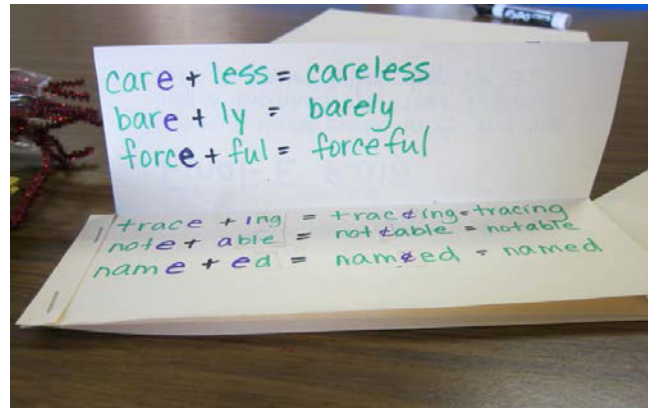 care + less = careless
bare + ly = barely
force + ful = forceful
trace + ing = trac¢ing = tracing
note + able = not¢able = notable
name + ed = nam¢ed = named